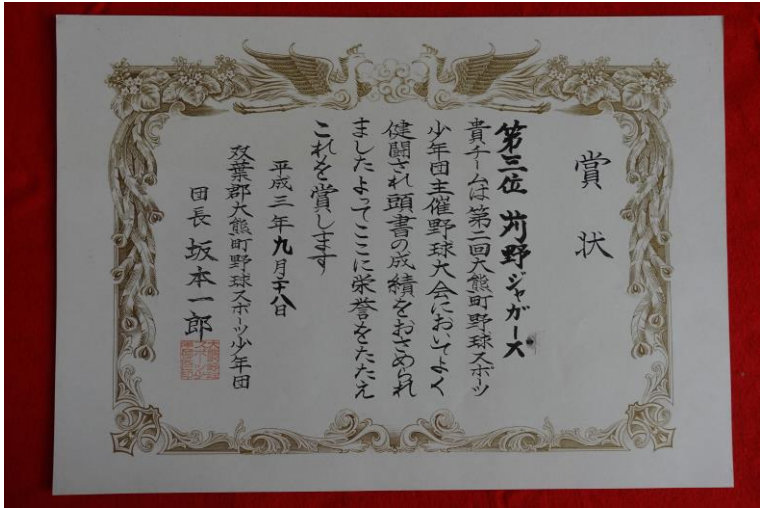 賞状
第三位 苅野ジャガーズ
貴チームは第二回大熊町野球スポーツ
少年団主催野球大会においてよく
健闘され頭書の成績をおさめられ
ましたよってここに栄誉をたたえ
これを賞します
平成三年九月二十八日
双葉郡大熊町野球スポーツ少年団
団長 坂本一郎